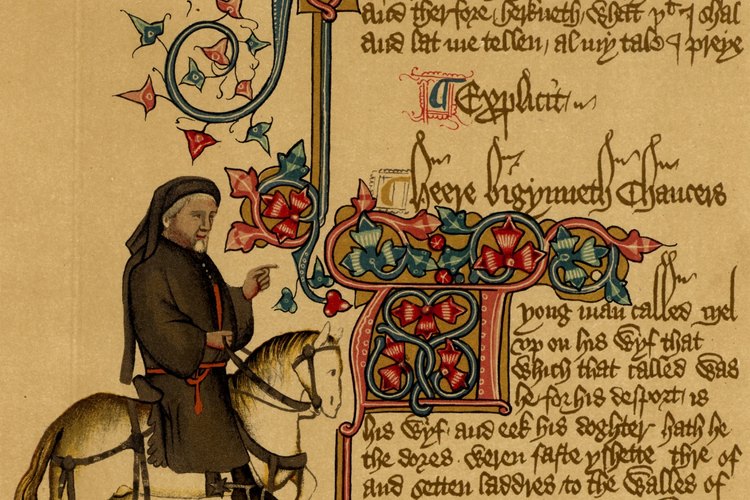 And therfore / herkneth / what yt I shal
And lat me tellen / al my tale I preye
¶ Explicit
¶ Heere bigynneth Chaucers
A yong man called Mel
vp on his wyf that
which that called was
he for his desport / is
his wyf / and eek his doghter hath he
the dores weren faste yshette thre of
and setten laddres to the walles of